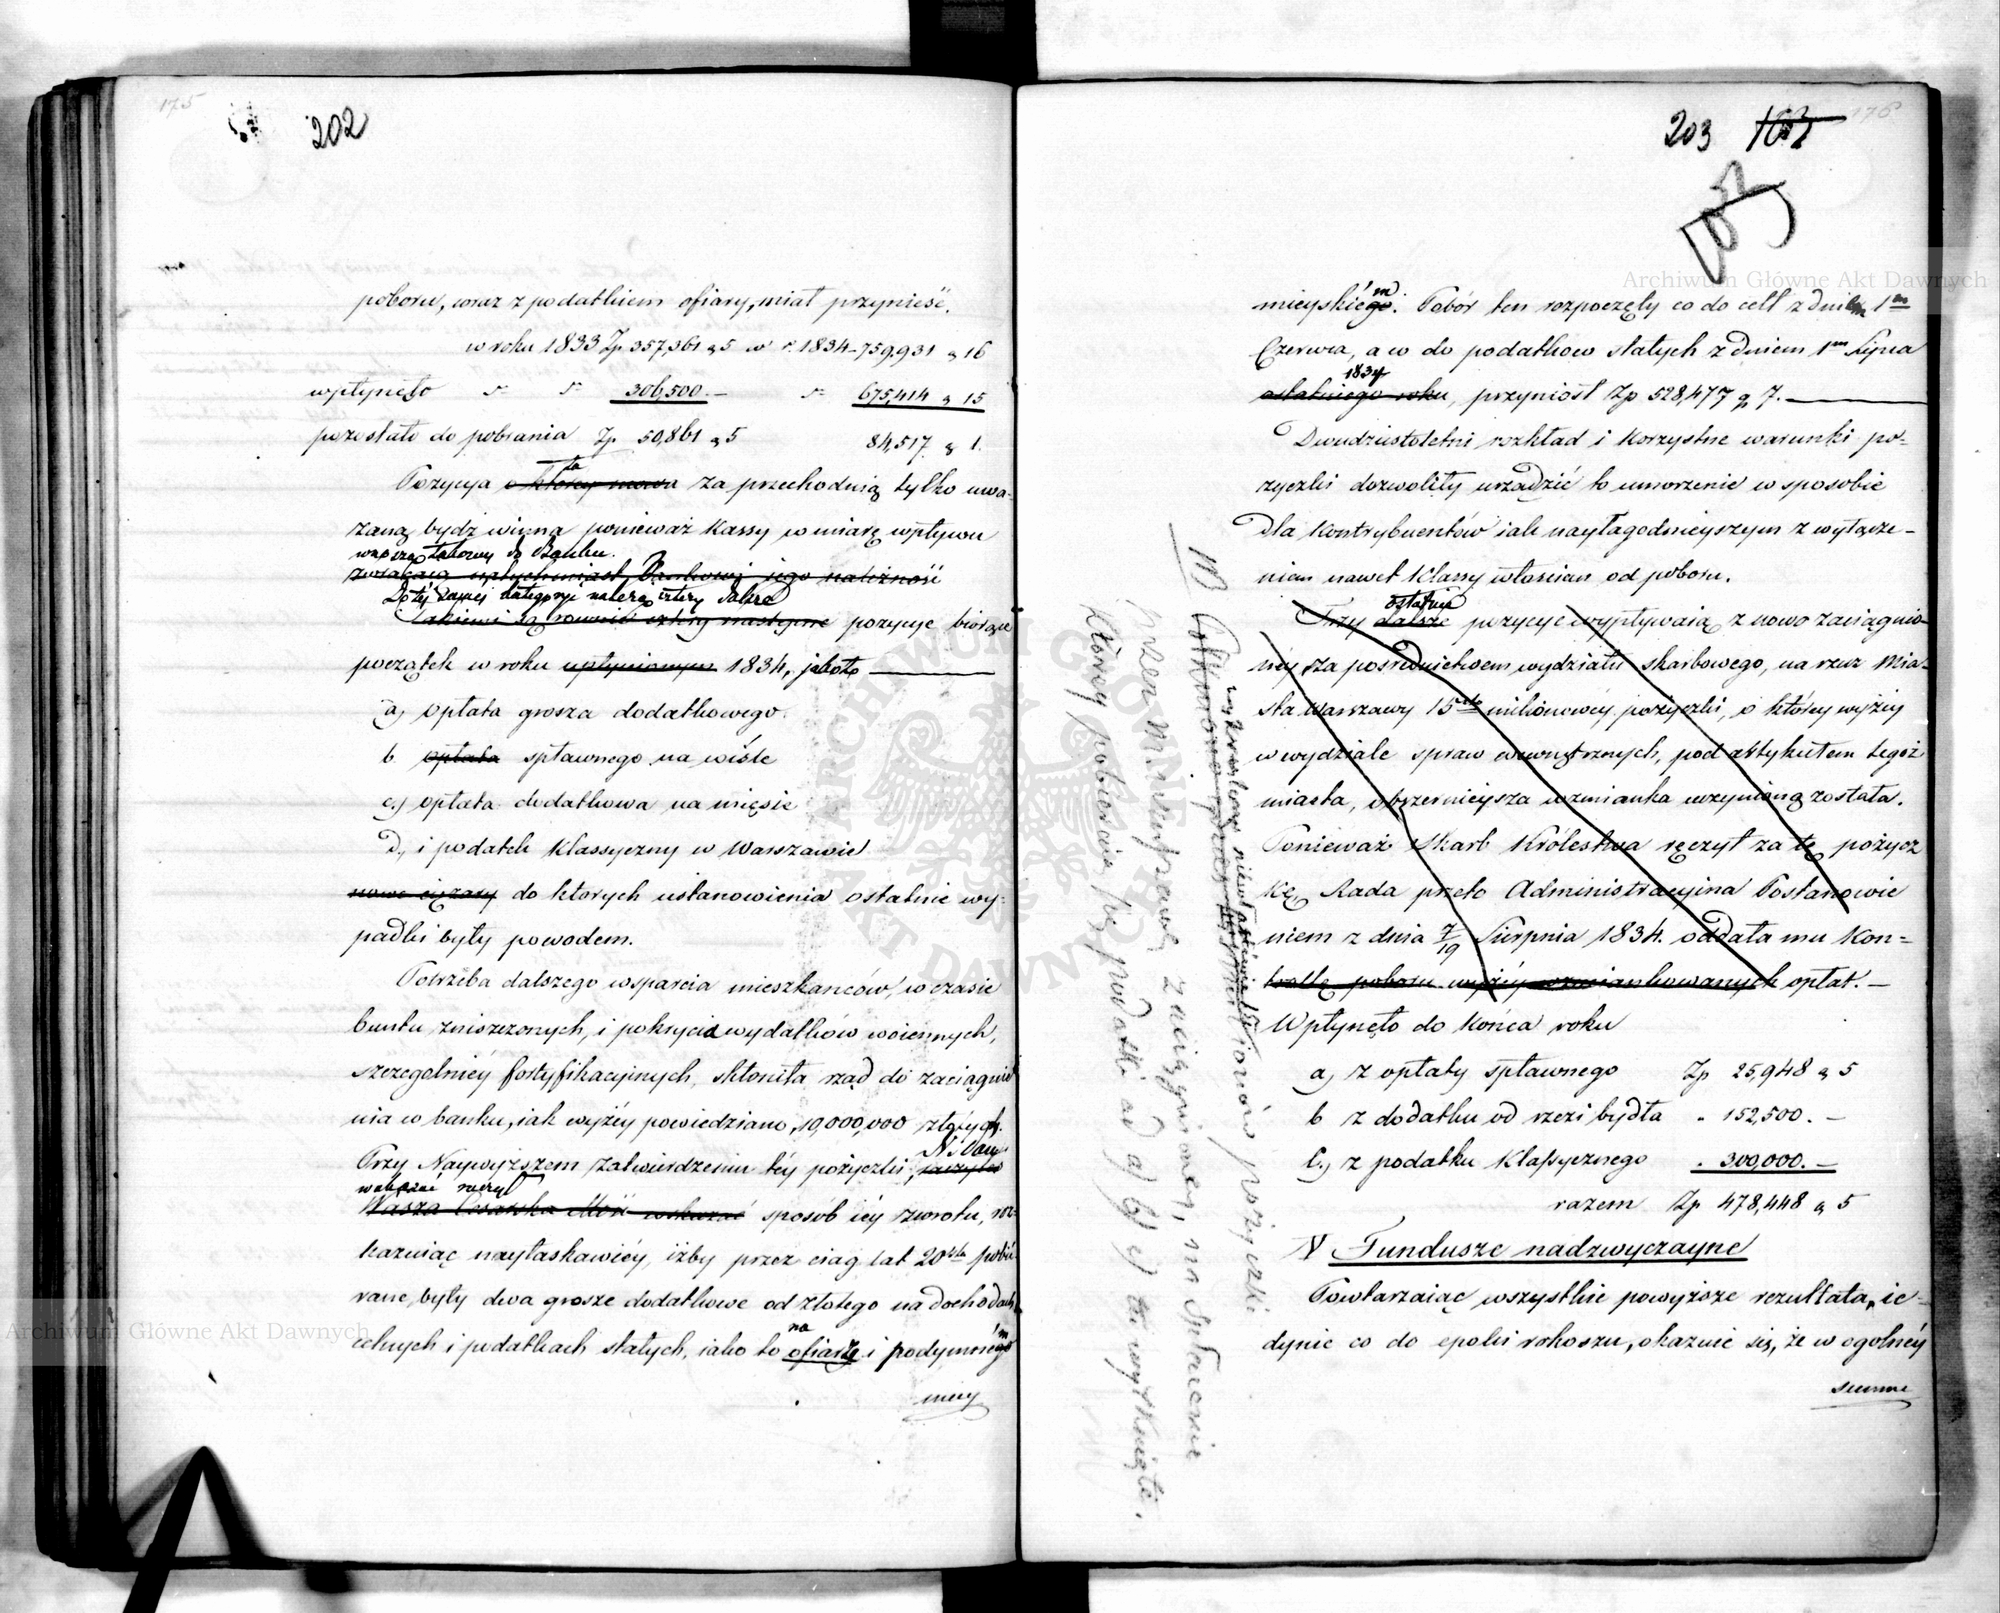 175
202
poboru, wraz z podatkiem ofiary, miał przynieść.
w roku 1833 Zp. 357,361 g 5 w r. 1834 – 759,931 g 16
wpłynęło 306,500.— 675,414 g 15
pozostało do pobrania Zp. 50,861 g 5 84,517 g 1.
Pozycya ta o którey mowa za przechodnią tylko uwa-
żaną bydź winna ponieważ Kassy w miarę wpływu
takowy do Banku.
zwracaią natychmiast Bankowi iego należność
Do tey samey kategoryi należą cztery dalsze
Takiemi są również cztery następne pozycye biorące
początek w roku upłynionym 1834, jakoto
a) opłata grosza dodatkowego.
b. opłata spławnego na wiśle
c.) opłata dodatkowa na mięsie
d., i podatek klassyczny w Warszawie
nowe ciężary do ktorych ustanowienia ostatnie wy-
padki były powodem.
Potrzeba dalszego wsparcia mieszkańców, w czasie
buntu zniszczonych, i pokrycia wydatków woiennych,
szczególniey fortyfikacyjnych, skłoniła rząd do zaciągnie
nia w banku, iak wyżey powiedziano, 10,000,000 złotych.
N. Pan
Przy Naywyższem zatwierdzeniu tey pożyczki, raczyłeś
wskazać raczył
Wasza Cesarska Mość wskazać sposób iey zwrotu, roz-
kazuiąc nayłaskawiey, iżby przez ciąg lat 20stu pobie
rane były dwa grosze dodatkowe od złotego na dochodach
na
celnych i podatkach stałych, iako to ofiarze i podymnego
miey
176
203 103
103
mieyskiego m. Pobór ten rozpoczęty co do ceł z dniem 1m
Czerwca, a co do podatkow stałych z dniem 1m Lipca
1834
ostatniego roku, przyniosł Zp 528,477 g 7.
Dwudziestoletni rozkład i korzystne warunki po-
życzki dozwoliły urządzić to umorzenie w sposobie
dla kontrybuentów iak nayłagodnieyszym z wyłącze-
niem nawet klassy włościan od poboru.
ostatnie
Trzy dalsze pozycye wypływaią z nowo zaciągnio-
ney za pośrednictwem wydziału skarbowego, na rzecz Mia-
sta Warszawy 15sto milionowey pożyczki, o którey wyżey
w wydziale spraw wewnętrznych, pod artykułem tegoż
miasta, obszernieysza wzmianka uczynioną została.
Ponieważ Skarb Królestwa ręczył za tę pożycz
kę, Rada przeto Administracyjna Postanowie
niem z dnia 7/19 Sierpnia 1834. oddała mu kon-
trollę poboru wyżey wzmiankowanych opłat.—
Wpłynęło do końca roku
a) z opłaty spławnego Zp 25,948 g 5
b z dodatku od rzezi bydła „ 152,500.—
c.) z podatku klassycznego „ 300,000.—
razem Zp 478,448 g 5
V Fundusze nadzwyczayne
Powtarzaiąc wszystkie powyższe rezultata, ie-
dynie co do epoki rokoszu, okazuie się, że w ogólney
summie
pożyczki
przez zaciągnioney, na spłacenie
którey pobiera się podatki ad a) b) c) tu wytknięte.
Archiwum Główne Akt Dawnych
Archiwum Główne Akt Dawnych
ARCHIWUM GŁÓWNE AKT DAWNYCH